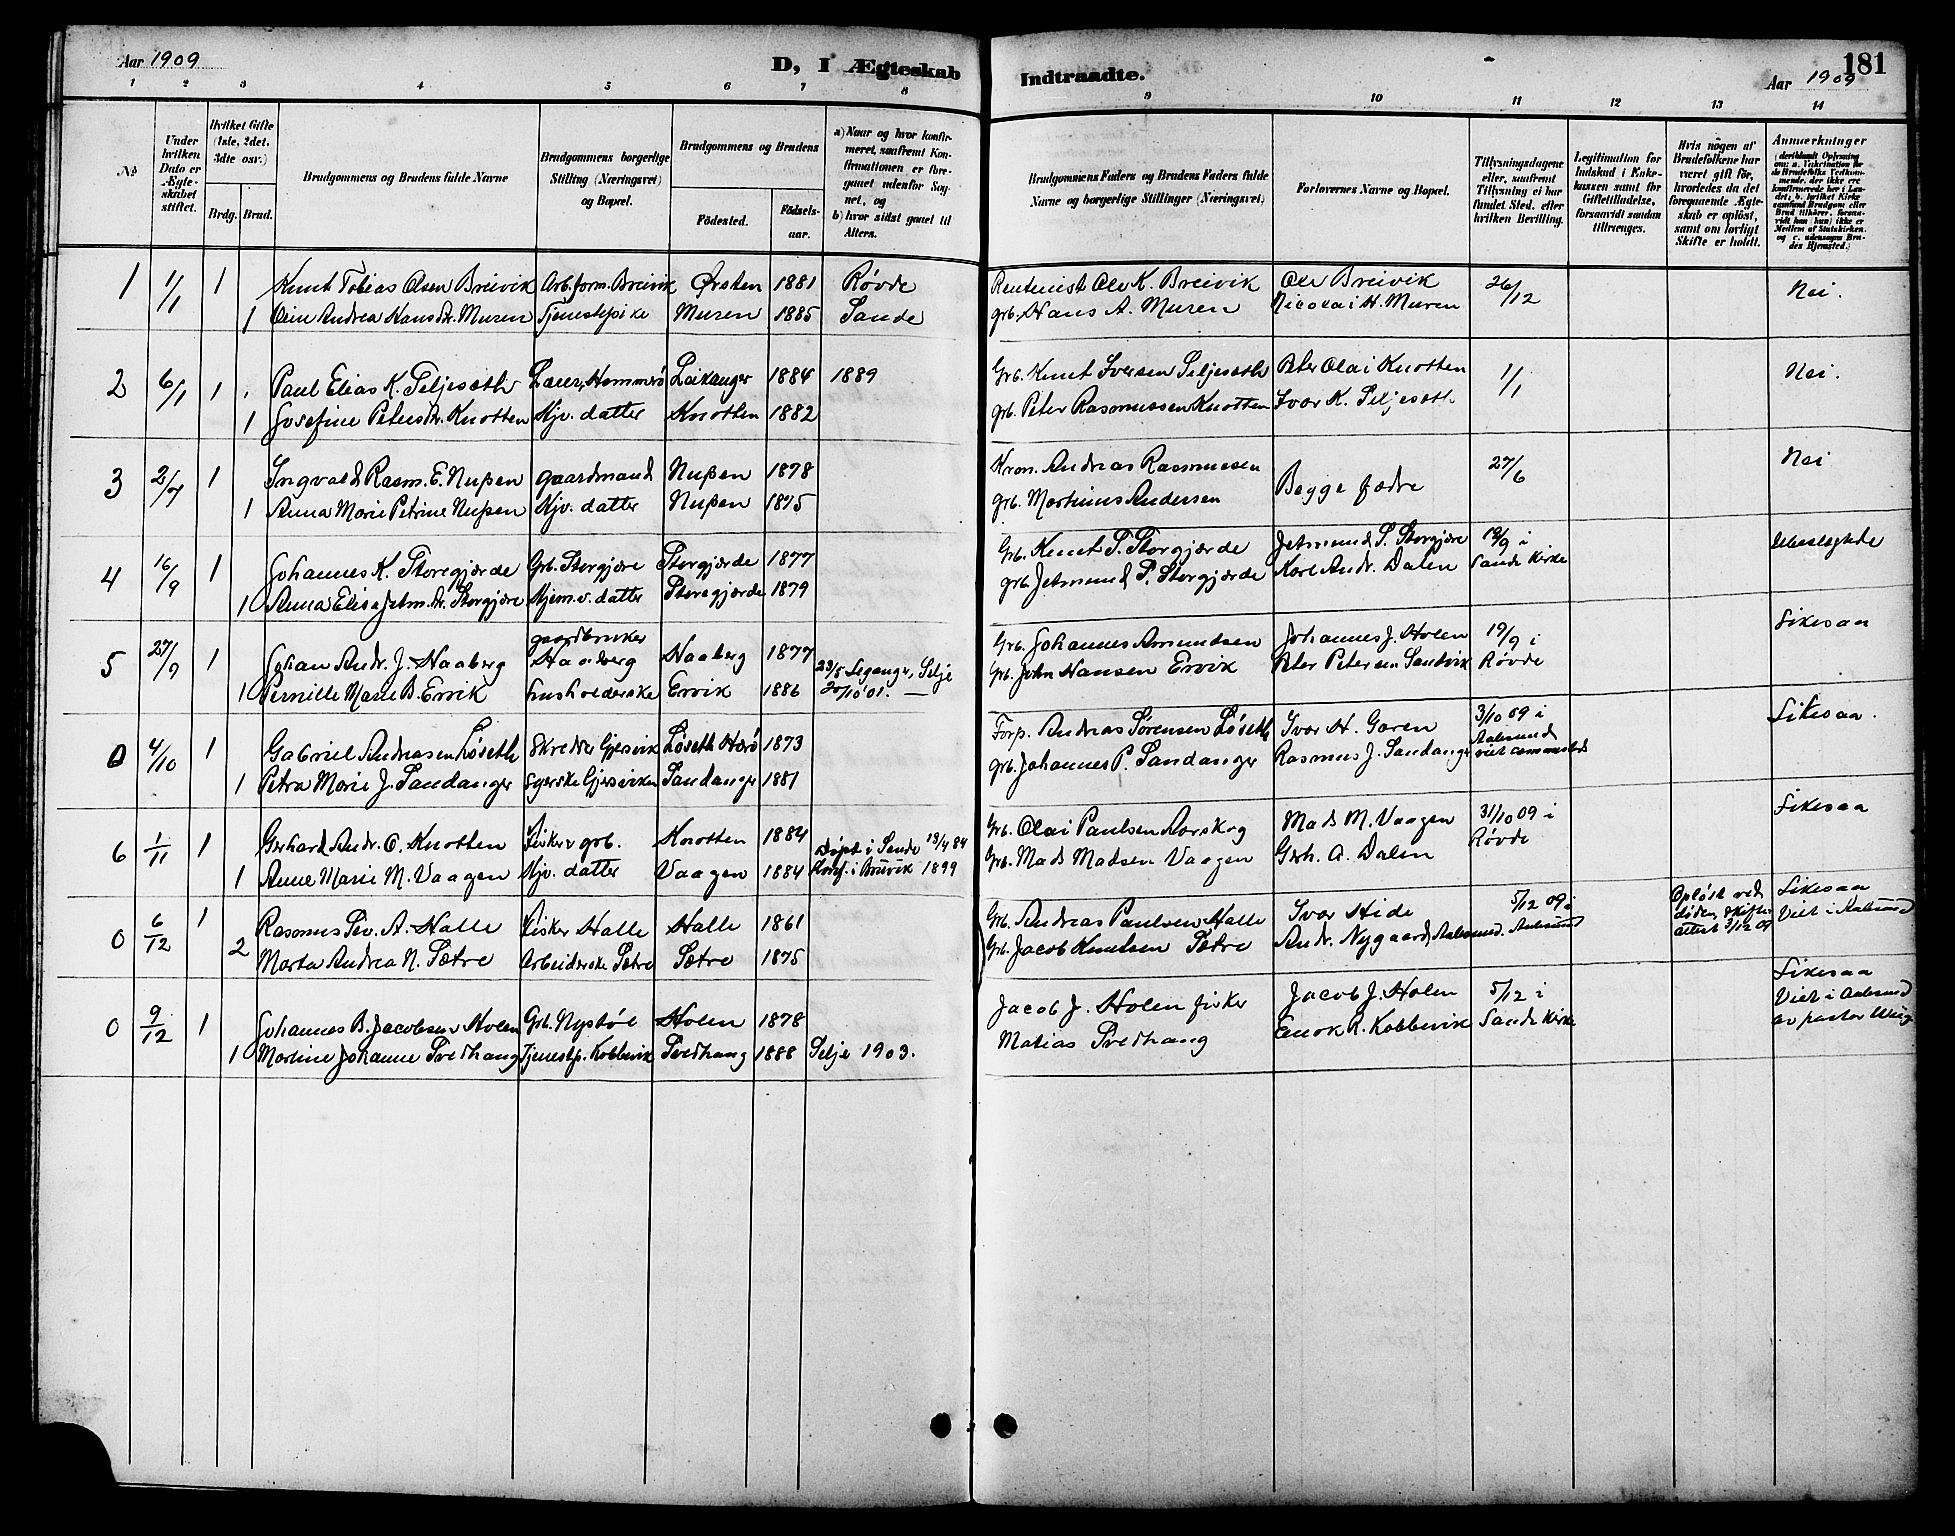 Aar 1909
D, I Ægteskab
Indtraadte.
Aar 1909
181
1 2 3 4 5 6 7 8 9 10 11 12 13 14
No
Under hvilken Dato er Ægteskabet stiftet.
Hvilket Gifte (1ste, 2det, 3dte osv.)
Brdg. Brud.
Brudgommens og Brudens fulde Navne
Brudgommens borgerlige Stilling (Næringsvei) og Bopæl.
Brudgommens og Brudens
Fødested.
Fødselsaar.
a) Naar og hvor konfirmeret, saafremt Konfirmationen er foregaaet udenfor Sognet, og
b) hvor sidst gaaet til Alters.
Brudgommens Faders og Brudens Faders fulde Navne og borgerlige Stillinger (Næringsvei)
Forlovernes Navne og Bopæl.
Tillysningsdagene eller, saafremt Tillysning ei har fundet Sted, efter hvilken Bevilling.
Legitimation for Indskud i Enkekassen samt for Giftetilladelse, forsaavidt saadan tiltrænges.
Hvis nogen af Brudefolkene har været gift før, hvorledes da det foregaaende Ægteskab er opløst, samt om lovligt Skifte er holdt.
Anmærkninger
1 1/1 1 Knut Tobias Olsen Breivik Arb.form. Breivik Ørsten 1881 Røvde Rentenist Ole K. Breivik Ole Breivik 26/12 Nei.
1 Oline Andrea Hansdtr. Muren Tjenestepike Muren 1885 Sande grb. Hans A. Muren Nicolai H. Muren
2 6/1 1 Paul Elias K. Seljeseth Lærer, Hammerø Leikanger 1884 1889 Grb. Knut Iversen Seljeseth Peter Olai Knotten 1/1 Nei.
1 Josefine Petersdtr. Knotten Hjv. datter Knotten 1882 grb. Peter Rasmussen Knotten Ivar K. Seljeseth
3 2/7 1 Ingvald Rasm. E. Nupen gaardmand Nupen 1878 Kron. Andreas Rasmussen Begge fædre 27/6 Nei
1 Anna Marie Petrine Nupen Hjv. datter Nupen 1875 grb. Martinus Andersen
4 16/9 1 Johannes K. Storegjærde Grb. Storgjære Storgjærde 1877 Grb. Knut P. Storgjærde Jetmund S. Storgjære 12/9 i Ubeslegtede
1 Anna Elise Jetm.dtr. Storgjære Hjem.v. datter Storegjærde 1879 grb. Jetmund P. Storgjærde Karl Andr. Dalen Sande Kirke
5 27/9 1 Johan Andr. J. Haaberg gaardbruker Haaberg Haaberg 1877 23/5 Segange, Selje Grb. Johannes Amundsen Johannes J. Holen 19/9 i Likesaa
1 Pernille Marie B. Ervik husholderske Ervik 1886 20/10 01. — Grb. John Hansen Ervik Peter Petersen Sandvik Røvde
0 4/10 1 Gabriel Andreasen Løseth Skredder Gjersvik Løseth Harø 1873 Forp. Andreas Sørensen Løseth Ivar H. Garen 3/10 09 i Aalesund Likesaa.
1 Petra Marie J. Sandanger Syerske Gjersviken Sandanger 1881 grb. Johannes P. Sandanger Rasmus J. Sandanger
6 1/11 1 Gerhard Andr. O. Knotten Fisker grb. Knotten 1884 Døpt i Sande 13/4 84 Grb. Olai Paulsen Aarskog Mads M. Vaagen 31/10 09 i Likesaa
1 Anne Marie M. Vaagen Hjv. datter Vaagen 1884 Konf. i Breivik 1899 Grb. Mads Madsen Vaagen Gerh. A. Dalen Røvde
0 6/12 1 Rasmus Sev. A. Halle Fisker Halle Halle 1861 Grb. Andreas Paulsen Halle Ivar Hide 5/12 09 i Opløst ved døden, skifteattest 3/12 09 Likesaa
2 Marta Andrea N. Sætre Arbeiderske Sætre Sætre 1875 Grb. Jacob Knutsen Sætre Andr. Nygaard, Aalesund. Aalesund Viet i Aalesund
0 9/12 1 Johannes B. Jacobsen Holen Grb. Nystøl Holen 1878 Jacob J. Holen fisker Jacob J. Holen 5/12 i Likesaa Viet i Aalesund
1 Martine Johanne Svedhaug Tjenestp. Kobbevik Svedhaug 1888 Selje 1903. Matias Svedhaug Enok R. Kobbevik Sande Kirke av pastor